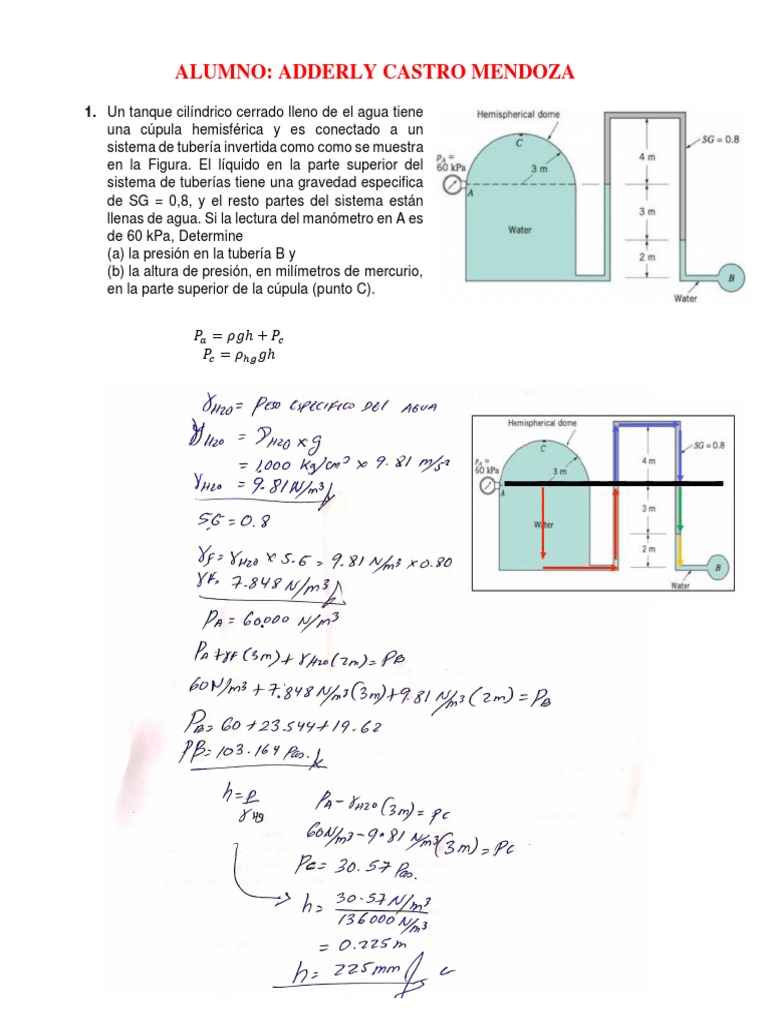 ALUMNO: ADDERLY CASTRO MENDOZA
1. Un tanque cilíndrico cerrado lleno de el agua tiene
una cúpula hemisférica y es conectado a un
sistema de tubería invertida como como se muestra
en la Figura. El líquido en la parte superior del
sistema de tuberías tiene una gravedad especifica
de SG = 0,8, y el resto partes del sistema están
llenas de agua. Si la lectura del manómetro en A es
de 60 kPa, Determine
(a) la presión en la tubería B y
(b) la altura de presión, en milímetros de mercurio,
en la parte superior de la cúpula (punto C).
Hemispherical dome
C
pA =
60 kPa
A
3 m
Water
4 m
3 m
2 m
SG = 0.8
B
Water
Pa = ρgh + Pc
Pc = ρhggh
γH2O = PESO ESPECIFICO DEL AGUA
γH2O = ρH2O x g
= 1,000 Kg/cm³ x 9.81 m/s²
γH2O = 9.81 N/m³
SG = 0.8
γf = γH2O x S.G = 9.81 N/m³ x 0.80
γf. 7.848 N/m³
PA = 60.000 N/m³
PA + γf (3m) + γH2O (2m) = PB
60 N/m³ + 7.848 N/m³ (3m) + 9.81 N/m³ (2m) = PB
PB = 60 + 23.544 + 19.62
PB = 103.164 Pas.
Hemispherical dome
C
pA =
60 kPa
A
3 m
Water
4 m
3 m
2 m
SG = 0.8
B
Water
h = P/γHg
PA - γH2O (3m) = PC
60 N/m³ - 9.81 N/m³ (3m) = PC
PC = 30.57 Pas.
h = 30.57 N/m³
136000 N/m³
= 0.225 m
h = 225 mm